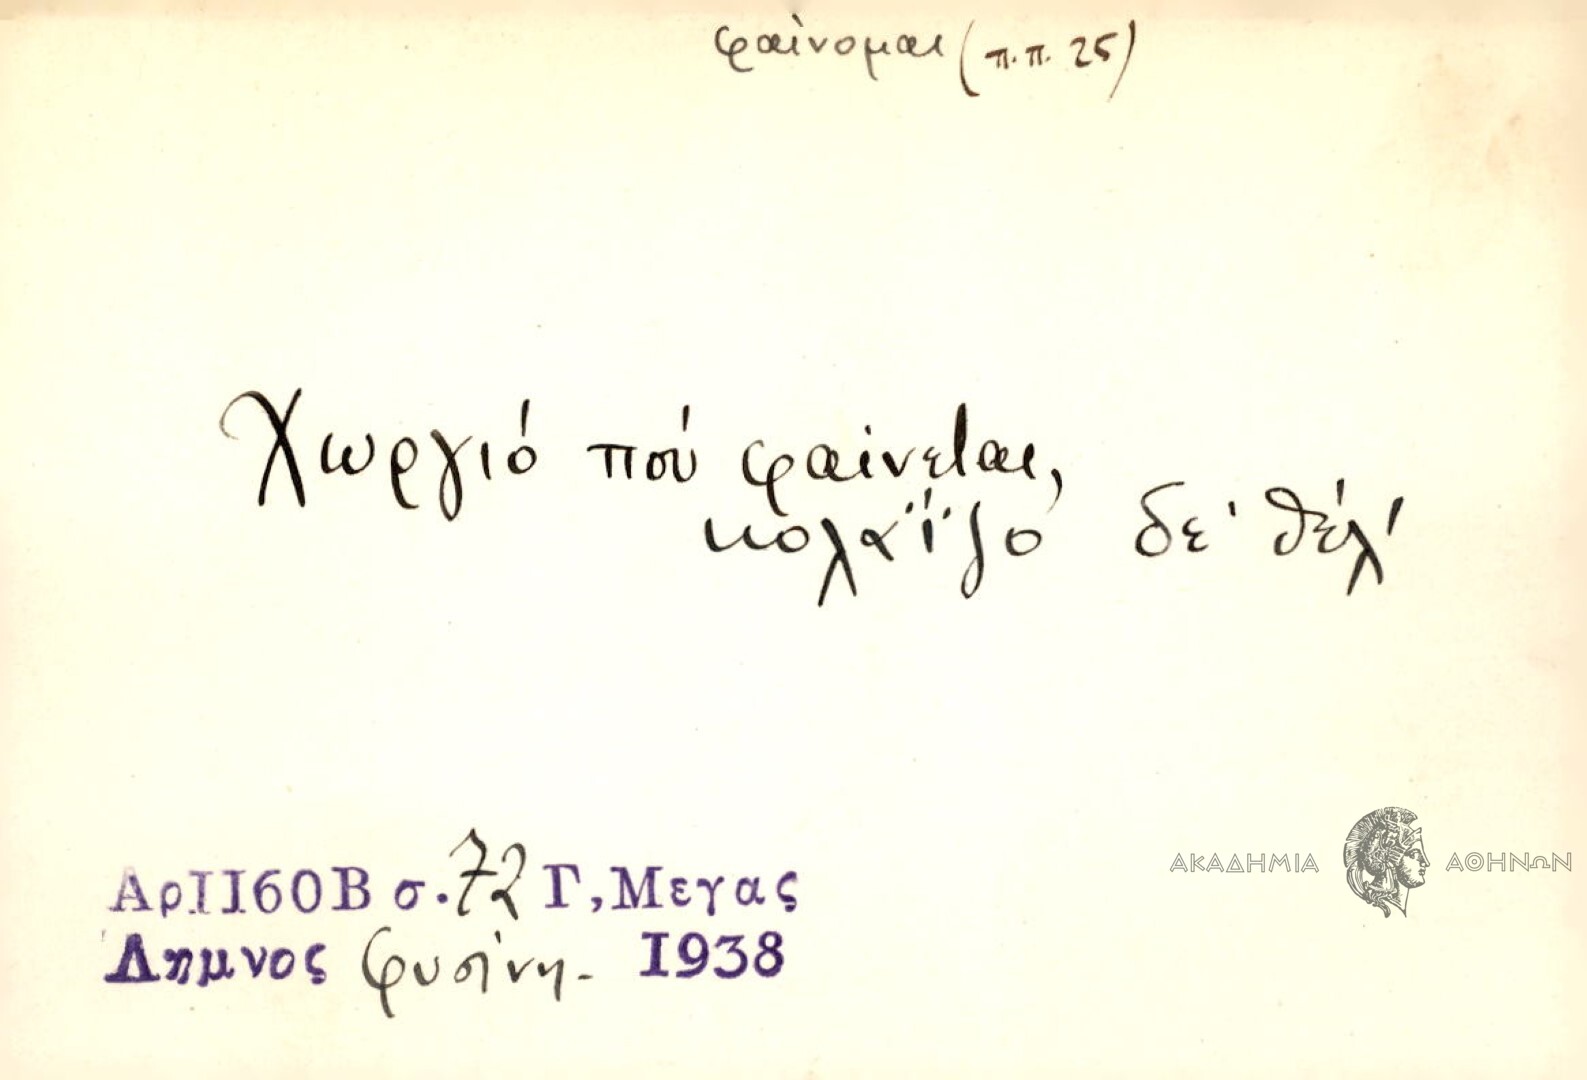 φαίνομαι (π.π. 25)
Χωργιό πού φαίνεται,
κολαΐζο δε' θέλ'
ΑρII60Β σ. 72 Γ,Μεγας
Λημνος Φυσίνη - 1938
ΑΚΑΔΗΜΙΑ ΑΘΗΝΩΝ